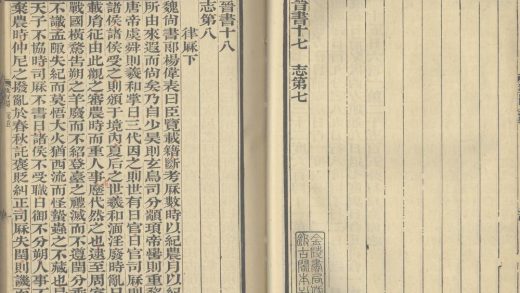 晉書十七 志第七
金陵書局仿
汲古閣本
晉書十八
志第八
律厤下
魏尚書郎楊偉表曰臣覽載籍斷考厤數時以紀農月以紀
所由來遐而尚矣乃自少昊則玄鳥司分顓頊帝嚳則重
唐帝虞舜則羲和掌日三代因之則世有日官日官司厤
諸侯諸侯受之則頒于境內夏后之世羲和湎淫廢時亂
載胤征由此觀之審農時而重人事歷代然之也逮至周室
戰國橫騖告朔之羊廢而不紹登臺之禮滅而不遵閏分乖
不識孟陬失紀而莫悟大火猶西流而怪蟄蟲之不藏也
天子不協時司厤不書日諸侯不受職日御不分朔人事不
棄農時仲尼之撥亂於春秋託褒貶糾正司厤失閏則譏而